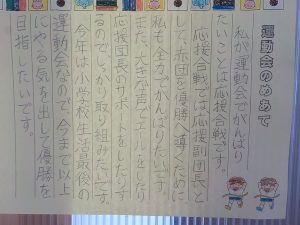 運動会のめあて
私が運動会でがんばり
たいことは応援合戦です。
応援合戦では応援副団長と
して、赤団を優勝へ導くために
私も全力でがんばりたいです。
また、大きな声でエールをしたり
応援団長のサポートをしたりす
るのでしっかり取り組みたいです。
今年は小学校生活最後の
運動会なので、今まで以上
にやる気を出して優勝を
目指したいです。